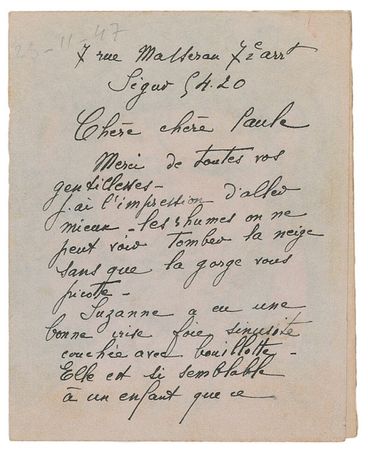 23-11-47
7 rue Masseran 7e arrt
Ségur 54.20
Chère chère Paule
Merci de toutes vos
gentillesses -
j'ai l'impression d'aller
mieux - les rhumes on ne
peut voir tomber la neige
sans que la gorge vous
picotte -
Suzanne a eu une
bonne crise foie sinusite
couchée avec bouillotte -
Elle est si semblable
à un enfant que ce